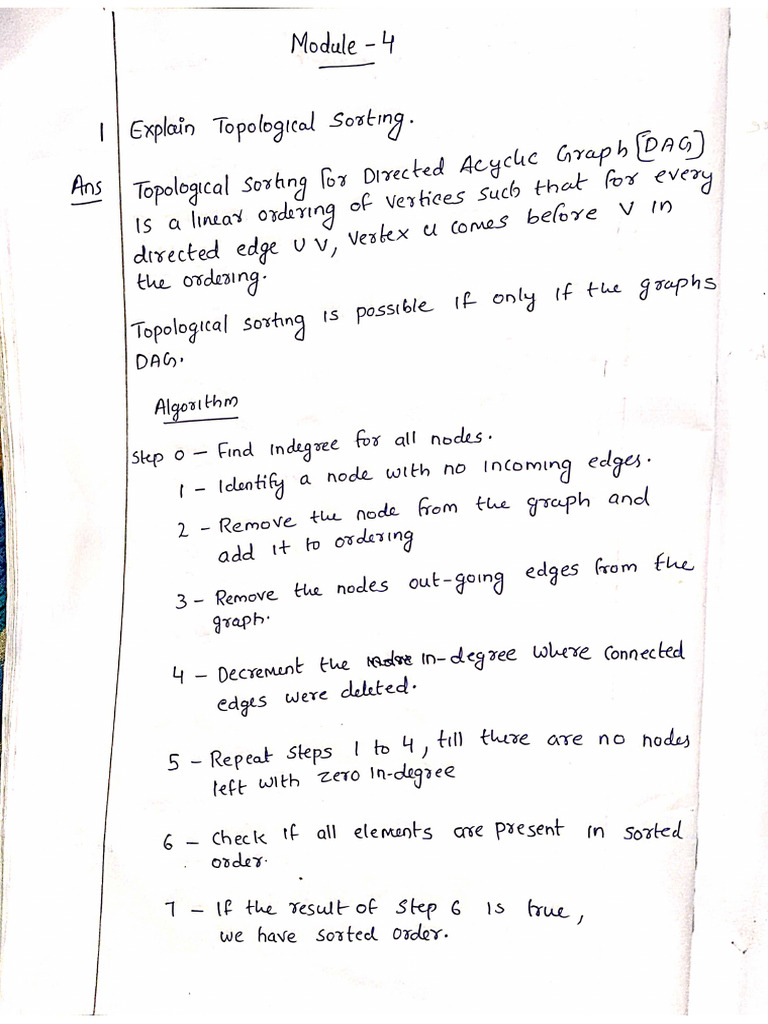 Module - 4
1 Explain Topological Sorting.
Ans Topological Sorting for Directed Acyclic Graph [DAG]
is a linear ordering of vertices such that for every
directed edge U V, vertex u comes before V in
the ordering.
Topological sorting is possible if only if the graphs
DAG.
Algorithm
Step 0 - Find indegree for all nodes.
1 - Identify a node with no incoming edges.
2 - Remove the node from the graph and
add it to ordering
3 - Remove the nodes out-going edges from the
graph.
4 - Decrement the in-degree where connected
edges were deleted.
5 - Repeat steps 1 to 4, till there are no nodes
left with zero in-degree
6 - Check if all elements are present in sorted
order.
7 - If the result of Step 6 is true,
we have sorted order.